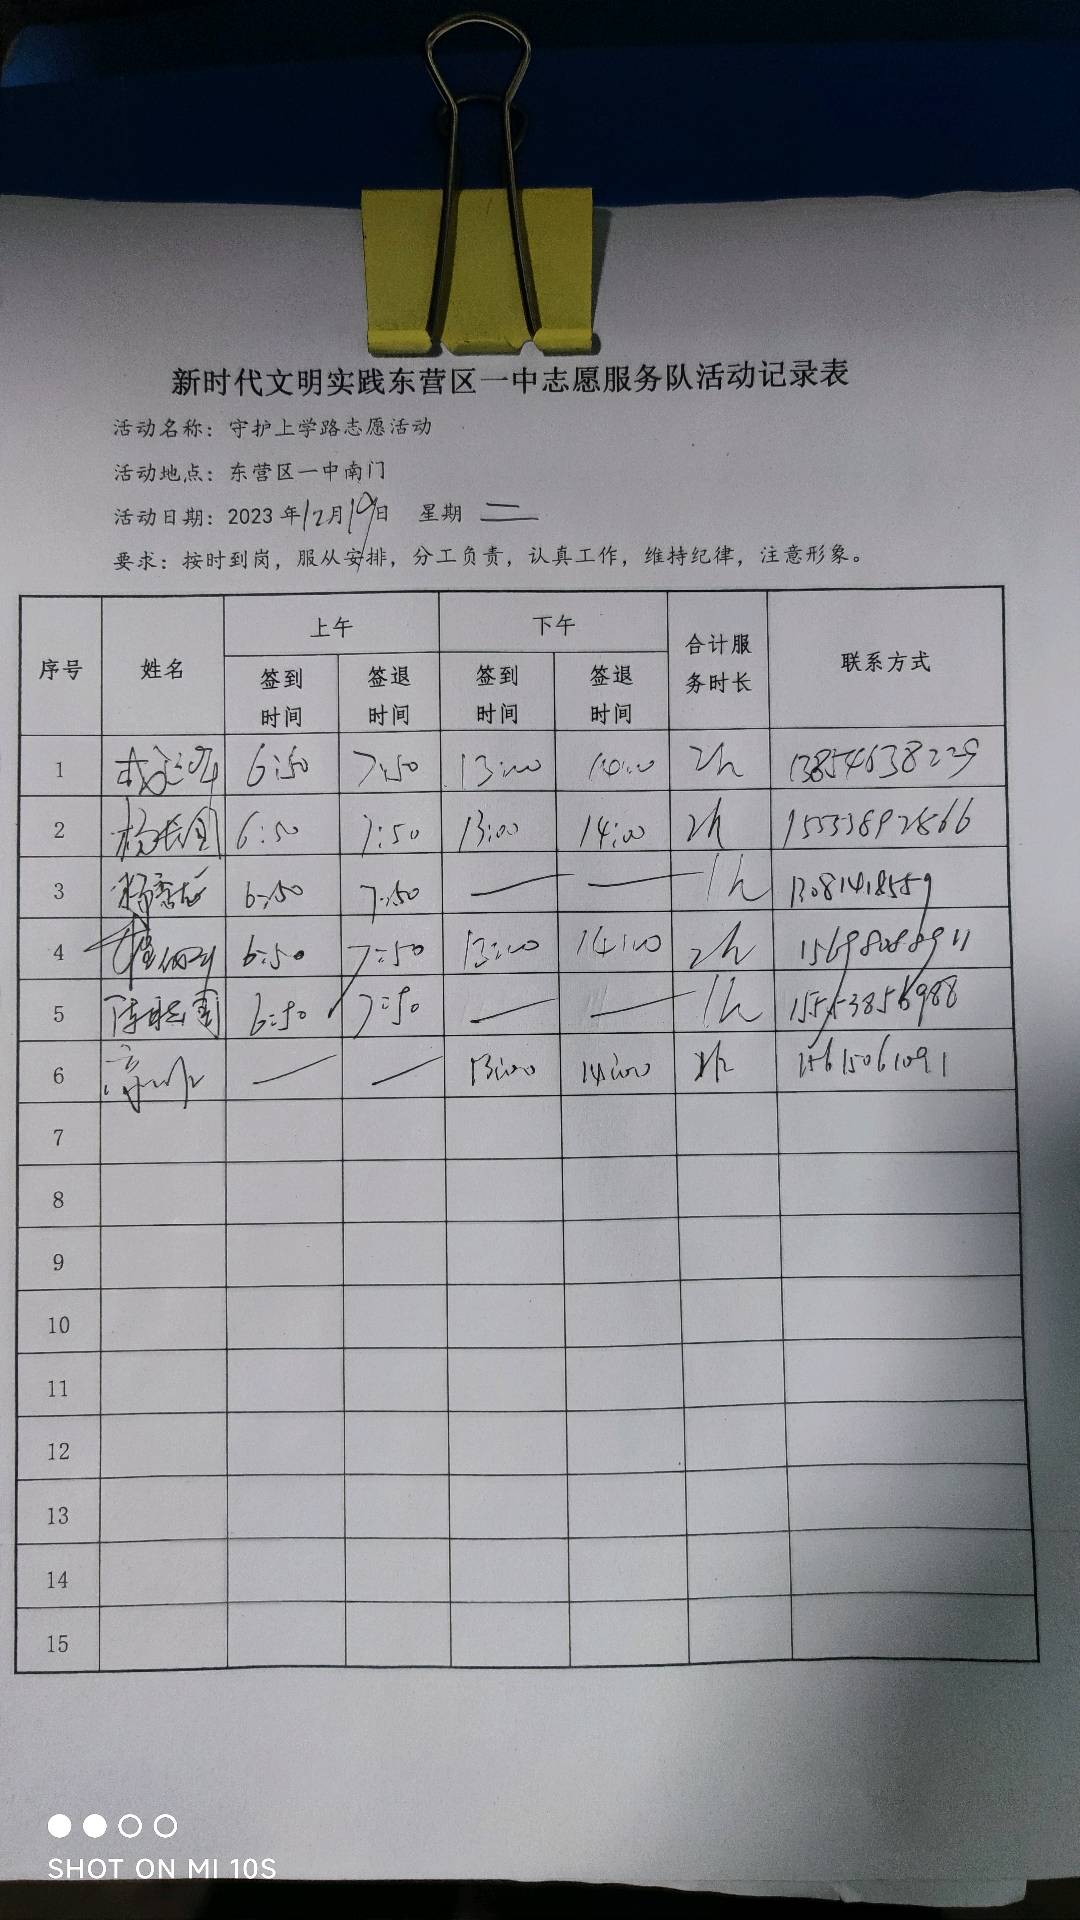 新时代文明实践东营区一中志愿服务队活动记录表
活动名称：守护上学路志愿活动
活动地点：东营区一中南门
活动日期：2023年12月19日 星期 二
要求：按时到岗，服从安排，分工负责，认真工作，维持纪律，注意形象。
序号 姓名 上午 下午 合计服务时长 联系方式
签到时间 签退时间 签到时间 签退时间
1 6:50 7:50 13:00 14:00 2h 13854638229
2 6:50 7:50 13:00 14:00 2h
3 6:50 7:50 — — 1h
4 6:50 7:50 13:00 14:00 2h
5 6:50 7:50 — — 1h
6 — — 13:00 14:00 15615061091
7
8
9
10
11
12
13
14
15
SHOT ON MI 10S